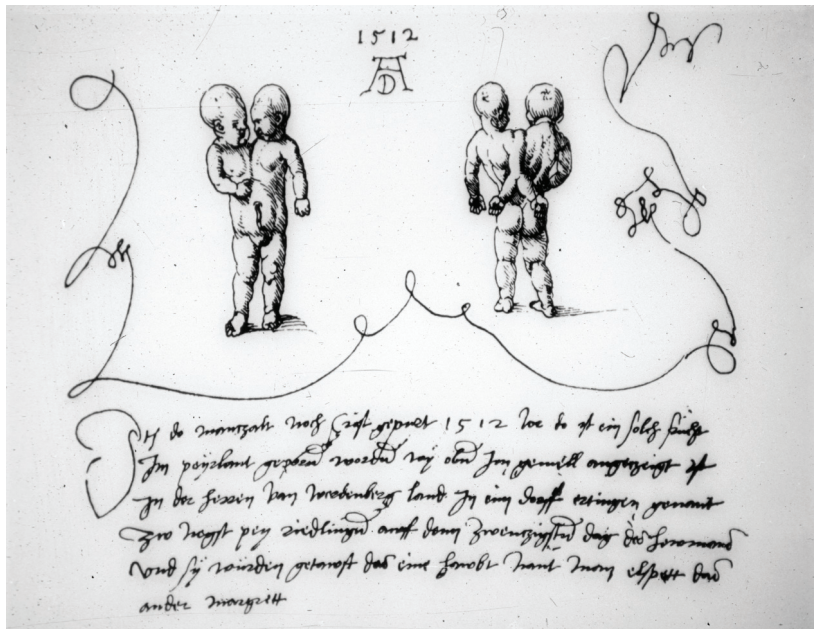 1512
AD
Itz do man zalt noch Crist gepurt 1512 Jor do ist ein solch frucht
Im peyrlant geporn wordn wy obn Im gemell angezeigt ist
In der herren van werdenberg land In eim dorff ertingen genant
zw negst pey riedlingn auf denn zwenzigstn dag des hewmond
vnd sy wurden getawft das eine hawbt nant man elspett das
ander margrett